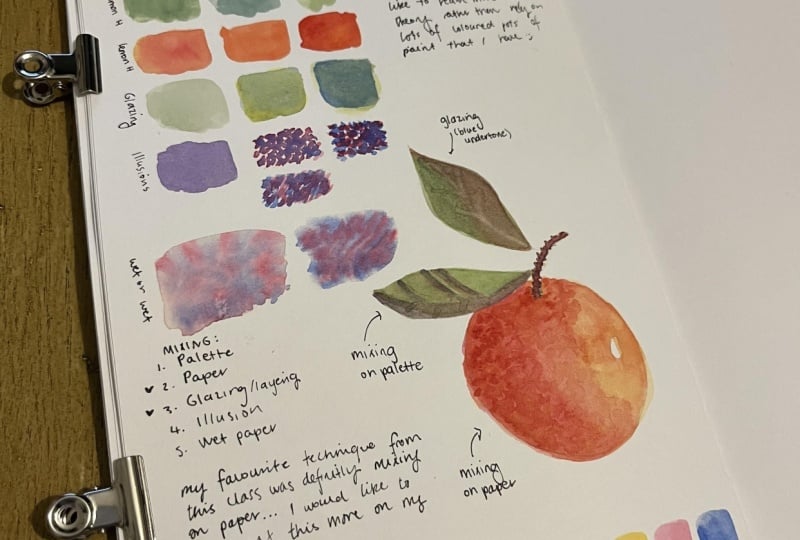 lemon H
lemon H
Glazing
Illusions
wet on wet
theory rather than rely on
lots of coloured pots of
paint that I have :)
glazing
(blue
undertone)
mixing
on palette
mixing
on paper
MIXING:
1. Palette
♥ 2. Paper
♥ 3. Glazing/layering
4. Illusion
5. Wet paper
my favourite technique from
this class was definitly mixing
on paper... I would like to
this more on my